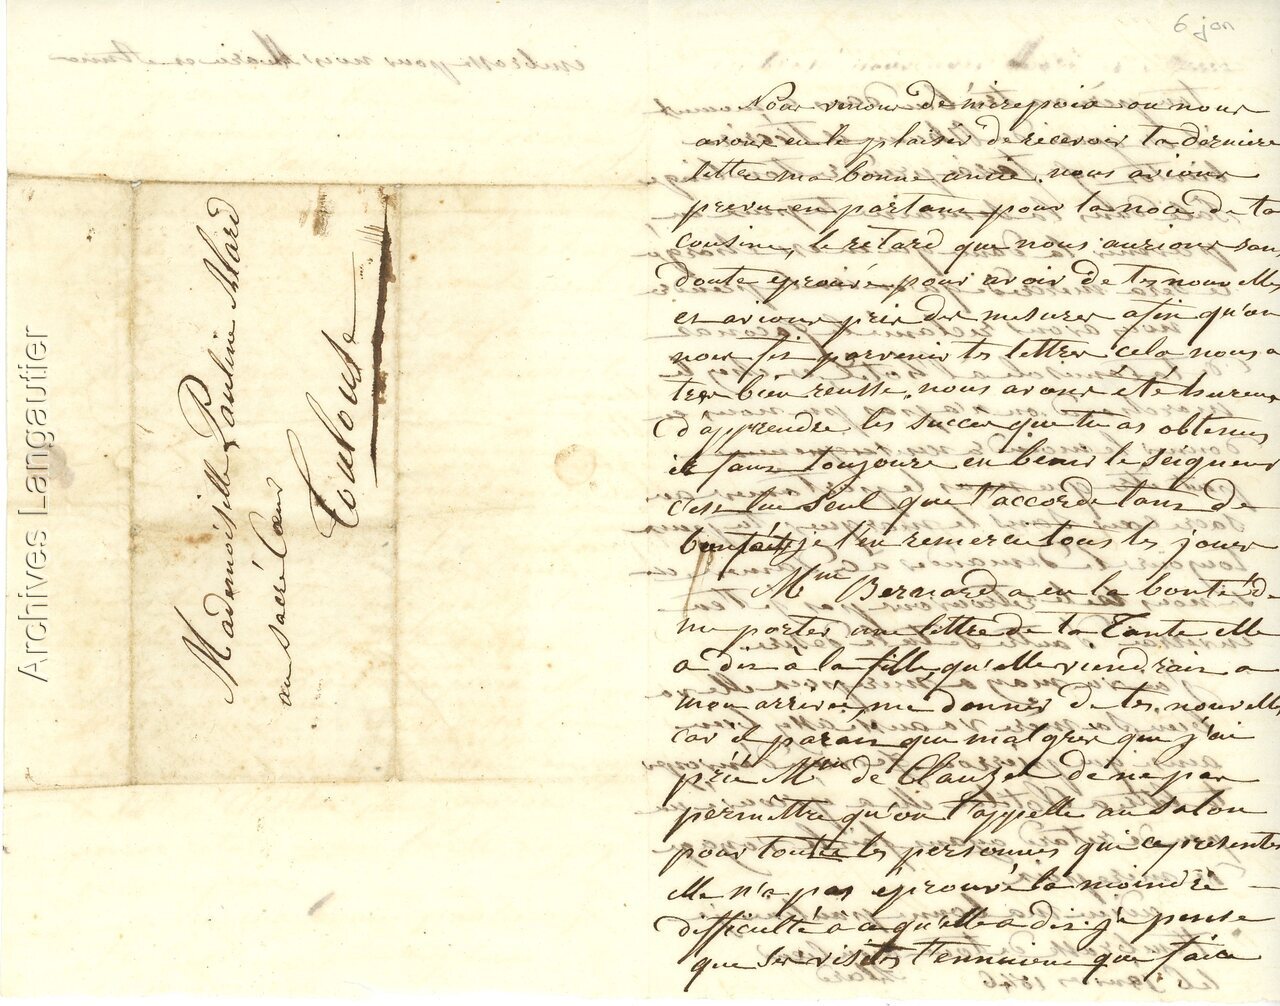 6 jan
Nous venons de mirepoix ou nous
avons eu le plaisir de recevoir ta derniere
lettre ma bonne amie. nous avions
prevu en partant pour la noce de ta
cousine, le retard que nous aurions sans
doute eprouvé pour avoir de tes nouvelles
et avions pris des mesures afin qu'on
nous fit parvenir tes lettres cela nous a
tres bien reussi. nous avons été heureux
d'apprendre les succes que tu as obtenus
il faut toujours en benir le seigneur
c'est lui seul qui t'accorde tant de
bontés je l'en remercie tous les jours
Mme Bernard a eu la bonté de
me porter une lettre de ta Tante elle
a dit à la fille qu'elle viendrait a
mon arrivée, me donner de tes nouvelles
car il parait que malgres que j'ai
prié Mme de Clauzel de ne pas
permettre qu'on t'appelle au salon
pour toutes les personnes qui se presentes
elle n'a pas éprouvé la moindre
difficulté a ce qu'elle a dit. je pense
que ses visites t'ennuient que faire
Mademoiselle Pauline Huard
au sacré Coeur
Toulouse
Archives Langautier